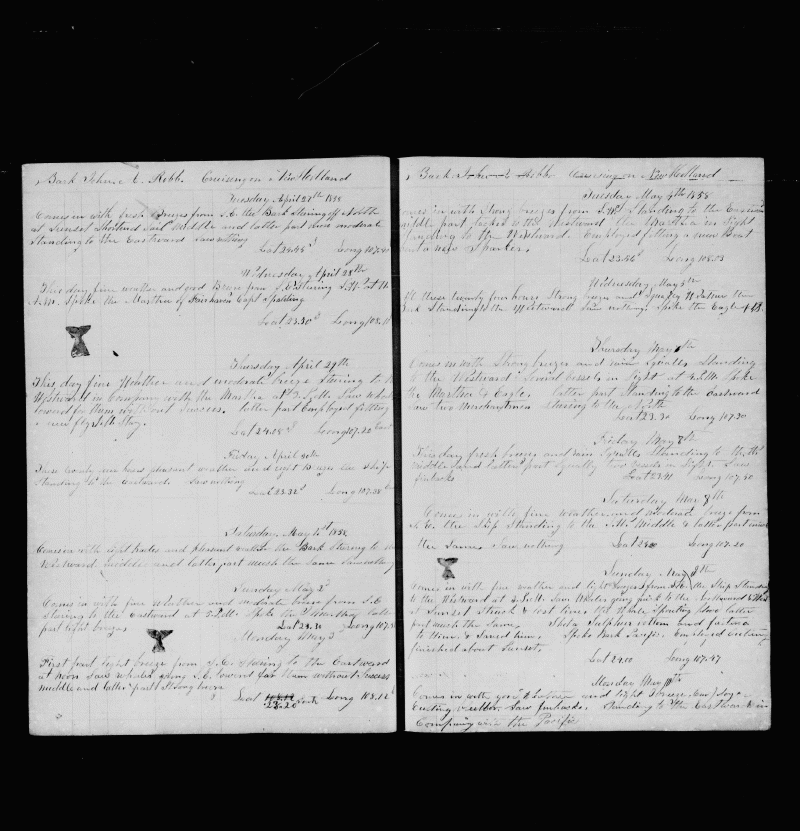 Bark John A. Robb. Cruising on New Holland
Tuesday April 27th 1858
Comes in with fresh Breezes from S.E. the Bark Steering off North
at Sunset Shortened Sail Middle and latter part more moderate
Standing to the Eastward Saw nothing
Lat 24.45 Long 107.
Wednesday April 28th
This day fine weather and good Breeze from S.E. Steering S.W. at
Spoke the Martha of Fairhaven Capt Spalding
Lat 23.50 Long 108.
Thursday April 29th
This day fine Weather and moderate breeze Steering to
Westward in Company with the Martha at 3 P.M. Saw Whales
lowered for them without Success. latter part Employed fitting
a new
Lat 24.08 Long 107.20 East
Friday April 30th
pleasant weather and light Breezes
Standing to the Eastward. Saw nothing
Lat 23.32 Long 107.38
Saturday May 1st 1858
Comes in with light and pleasant weather the Bark Steering to
Westward middle and latter part much the Same Saw nothing
Sunday May 2
Comes in with fine Weather and moderate breeze from S.E.
Steering to the Eastward at 5 P.M. Spoke the latter
part light breezes
Lat 24.10 Long 107.
Monday May 3
First part light breeze from S.E. Steering to the Eastward
at noon Saw whales going S.E. lowered for them without Success
middle and latter part Strong breeze
Lat 23.20 South Long 108.12
Bark John A Robb Cruising on New Holland
Tuesday May 4th 1858
Comes in with Strong breezes from S.W. Standing to the Eastward
middle part tacked to the Westward the Martha in Sight
Standing to the Westward. Employed fitting a new Boat
and a new Spanker.
Lat 23.56 Long 108.03
Wednesday May 5th
these twenty four hours Strong breezes and Squally Weather the
Bark Standing to the Westward Saw nothing. Spoke the Eagle
Thursday May 6th
Comes in with Strong breezes and rain Squalls Standing
to the Westward Several vessels in Sight at 4 P.M. Spoke
the Martha & Eagle. latter part Standing to the Eastward
Saw two Merchantmen Steering to the North
Lat 23.30 Long 107.30
Friday May 7th
This day fresh breezes and rain Squalls Standing to the
middle and latter part Squally two vessels in Sight. Saw
finbacks
Lat 23.41 Long 107.50
Saturday May 8th
Comes in with fine Weather and moderate breeze from
S.E. the Ship Standing to the S.W. Middle & latter part much
the Same Saw nothing Lat 24.00 Long 107.20
Sunday May 9th
Comes in with fine weather and light Breezes from the Ship Standing
to the Westward at 3 P.M. Saw Whales going quick to the
at Sunset Struck & lost Irons latter
part much the Same. Shot a Sulphur bottom and fastened
to him & Saved him. Spoke Bark Pacific. Employed cutting
finished about Sunset.
Lat 24.00 Long 107.47
Monday May 10th
Comes in with good Weather and light Breeze
Cutting Saw finbacks. Standing to the Eastward in
Company with the Pacific